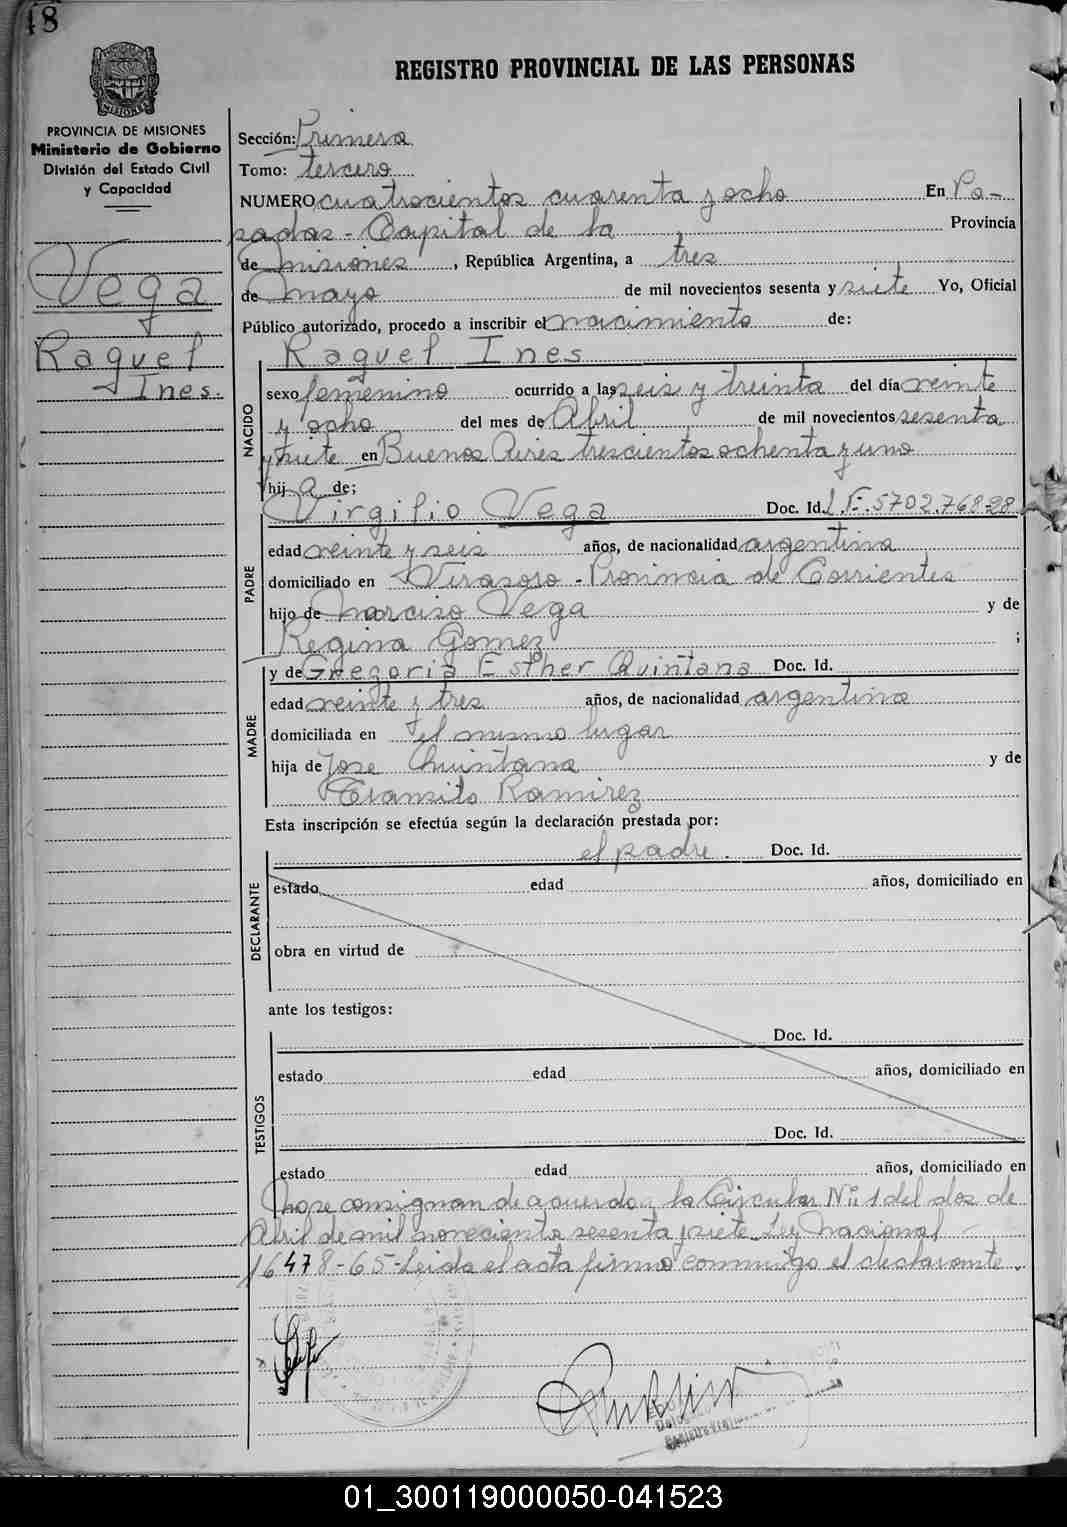 48
REGISTRO PROVINCIAL DE LAS PERSONAS
MISIONES
PROVINCIA DE MISIONES
Ministerio de Gobierno
División del Estado Civil
y Capacidad
Vega
Raquel
Ines.
Sección: Primera
Tomo: tercero
NUMERO cuatrocientos cuarenta y ocho En Po-
sadas - Capital de la Provincia
de misiones, República Argentina, a tres
de mayo de mil novecientos sesenta y siete Yo, Oficial
Público autorizado, procedo a inscribir el nacimiento de:
Raquel Ines
NACIDO
sexo femenino ocurrido a las seis y treinta del día veinte
y ocho del mes de Abril de mil novecientos sesenta
y siete en Buenos Aires trescientos ochenta y uno
hij a de;
Virgilio Vega Doc. Id. L.E. 5702.768
PADRE
edad veinte y seis años, de nacionalidad argentina
domiciliado en Virasoro - Provincia de Corrientes
hijo de Narciso Vega y de
Regina Gomez ;
y de Gregoria Esther Quintana Doc. Id.
MADRE
edad veinte y tres años, de nacionalidad argentina
domiciliada en el mismo lugar
hija de Jose Quintana y de
Transito Ramirez
Esta inscripción se efectúa según la declaración prestada por:
el padre. Doc. Id.
DECLARANTE
estado edad años, domiciliado en
obra en virtud de
ante los testigos:
Doc. Id.
TESTIGOS
estado edad años, domiciliado en
Doc. Id.
estado edad años, domiciliado en
no se consignan de acuerdo a la Circular Nº 1 del dos de
Abril de mil novecientos sesenta y siete Ley Nacional
16478-65- Leida el acta firma conmigo el declarante.
01_300119000050-041523